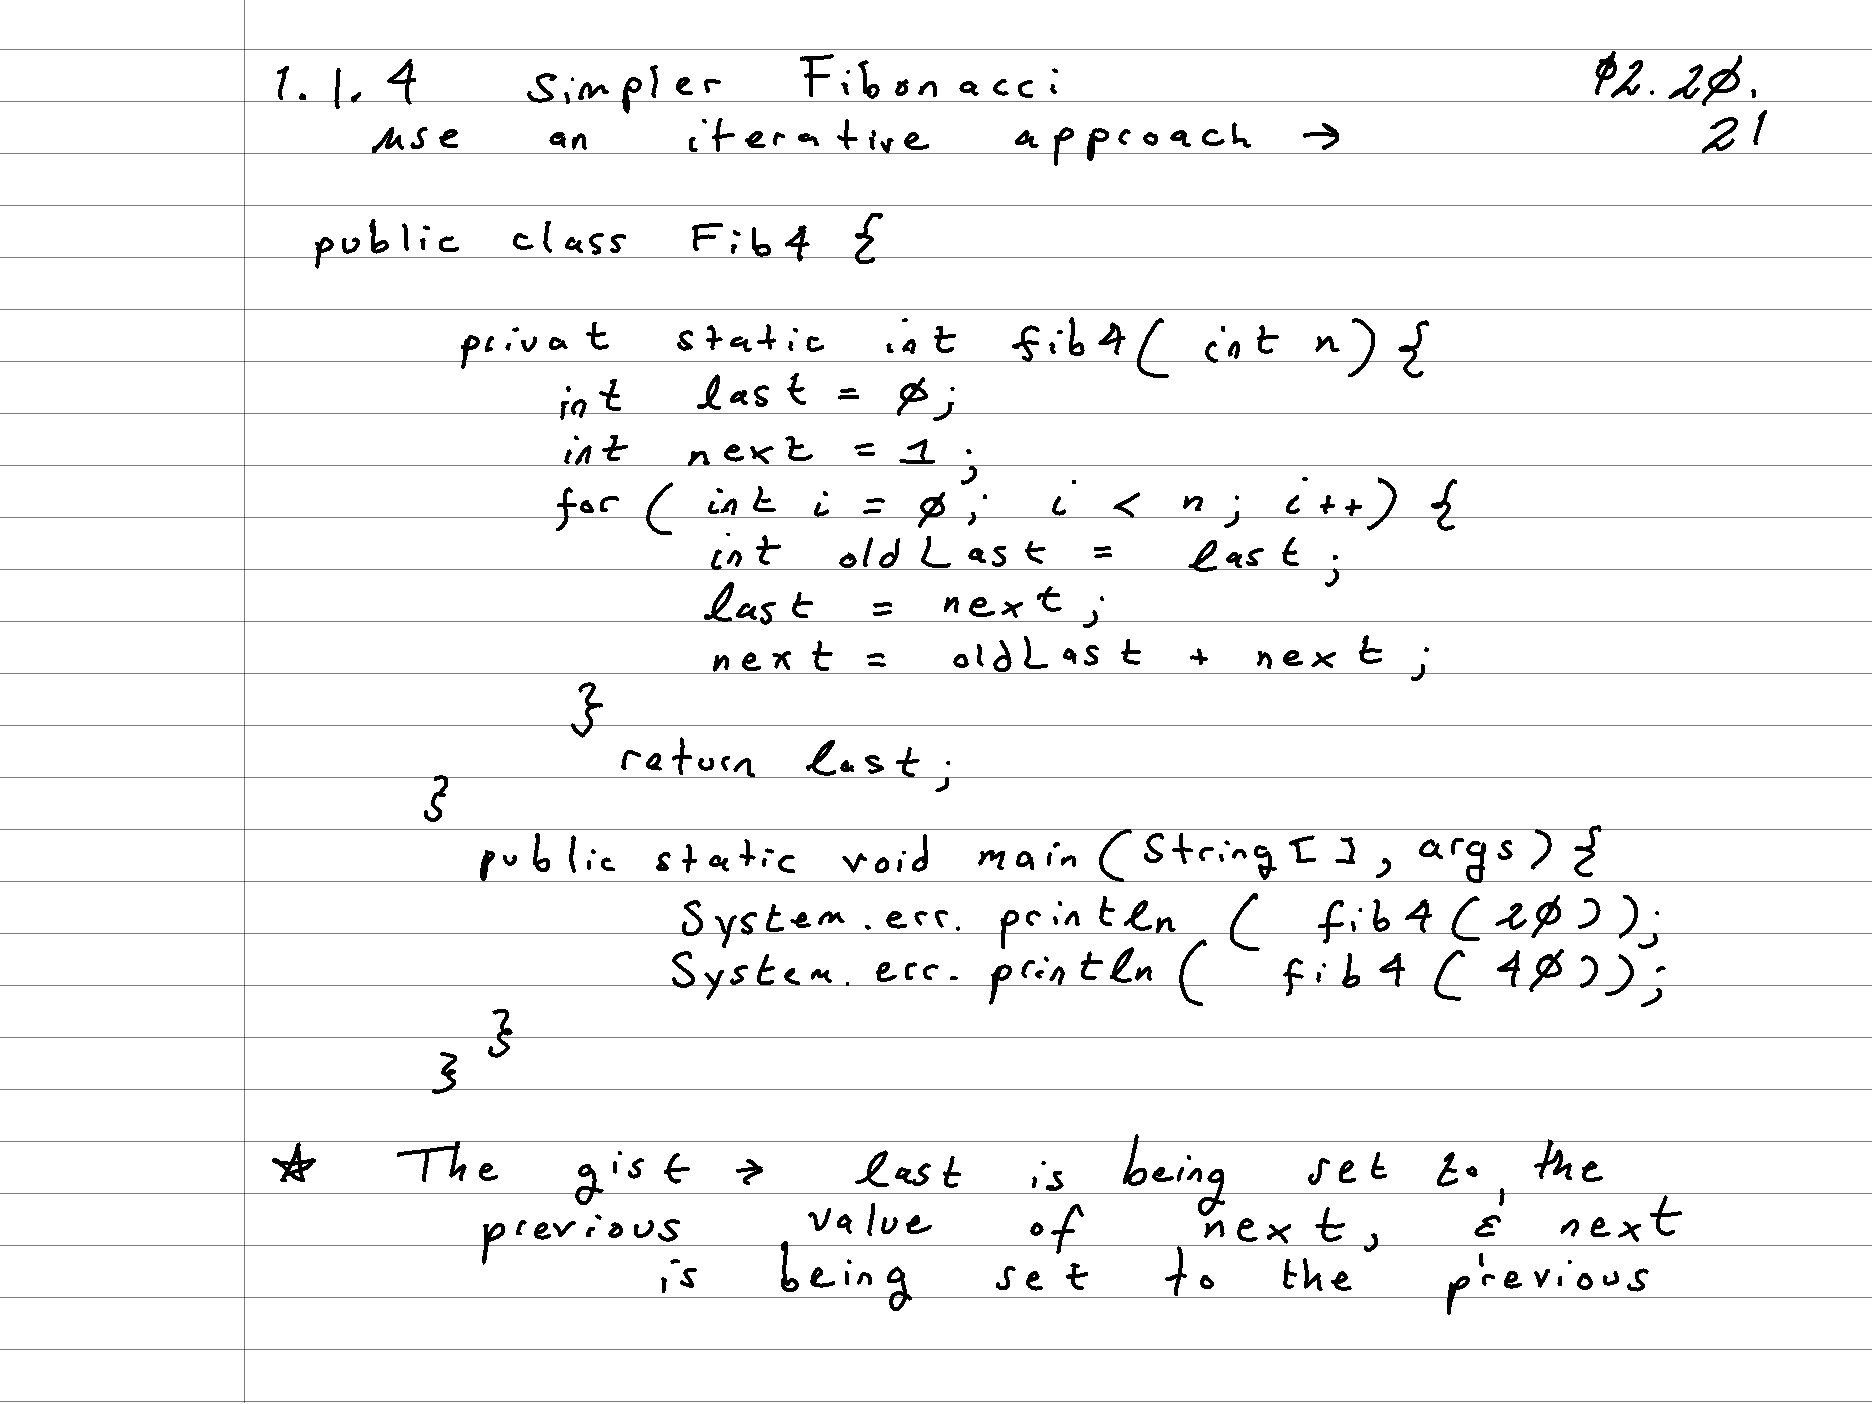 1.1.4 Simpler Fibonacci 02.20.
use an iterative approach → 21
public class Fib4 {
privat static int fib4( int n) {
int last = 0;
int next = 1;
for ( int i = 0; i < n; i++) {
int oldLast = last;
last = next;
next = oldLast + next;
}
return last;
}
public static void main (String[], args) {
System.err.println ( fib4(20));
System.err.println ( fib4 (40));
}
}
☆ The gist → last is being set to the
previous value of next, & next
is being set to the previous